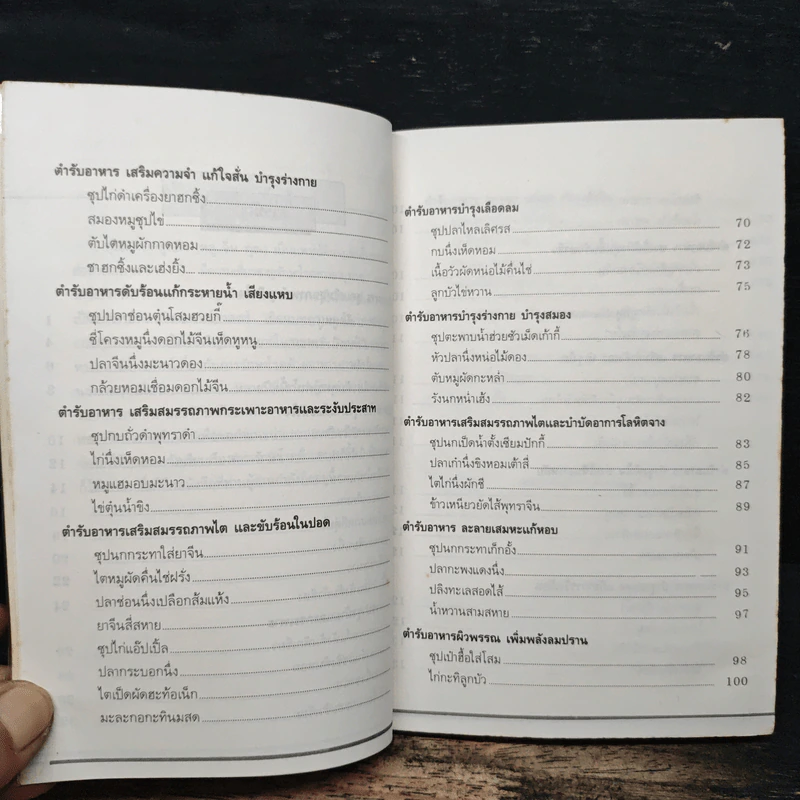 ตำรับอาหาร เสริมความจำ แก้ใจสั่น บำรุงร่างกาย
ซุปไก่ดำเครื่องยาฮกซิ้ง
สมองหมูซุปไข่
ตับไตหมูผักกาดหอม
ชาฮกซิ้งและเฮ่งยิ้ง
ตำรับอาหารดับร้อนแก้กระหายน้ำ เสียงแหบ
ซุปปลาช่อนตุ๋นโสมฮวยกี๊
ซี่โครงหมูนึ่งดอกไม้จีนเห็ดหูหนู
ปลาจีนนึ่งมะนาวดอง
กล้วยหอมเชื่อมดอกไม้จีน
ตำรับอาหาร เสริมสมรรถภาพกระเพาะอาหารและระงับประสาท
ซุปกบถั่วดำพุทราดำ
ไก่นึ่งเห็ดหอม
หมูแฮมอบมะนาว
ไข่ตุ๋นน้ำขิง
ตำรับอาหารเสริมสมรรถภาพไต และขับร้อนในปอด
ซุปนกกระทาใส่ยาจีน
ไตหมูผัดคื่นไช่ฝรั่ง
ปลาช่อนนึ่งเปลือกส้มแห้ง
ยาจีนสี่สหาย
ซุปไก่แอ๊ปเปิ้ล
ปลากระบอกนึ่ง
ไตเป็ดผัดฮะท้อเน็ก
มะละกอกะทินมสด
ตำรับอาหารบำรุงเลือดลม
ซุปปลาไหลเลิศรส 70
กบนึ่งเห็ดหอม 72
เนื้อวัวผัดหน่อไม้คื่นไช่ 73
ลูกบัวไข่หวาน 75
ตำรับอาหารบำรุงร่างกาย บำรุงสมอง
ซุปตะพาบน้ำฮ่วยซัวเม็ดเก้ากี้ 76
หัวปลานึ่งหน่อไม้ดอง 78
ตับหมูผัดกะหล่ำ 80
รังนกหน่าเฮ้ง 82
ตำรับอาหารเสริมสมรรถภาพไตและบำบัดอาการโลหิตจาง
ซุปนกเป็ดน้ำตั้งเซียมปักกี้ 83
ปลาเก๋านึ่งขิงหอมเต้าสี่ 85
ไตไก่นึ่งผักชี 87
ข้าวเหนียวยัดไส้พุทราจีน 89
ตำรับอาหาร ละลายเสมหะแก้หอบ
ซุปนกกระทาเก็กอั้ง 91
ปลากะพงแดงนึ่ง 93
ปลิงทะเลสอดไส้ 95
น้ำหวานสามสหาย 97
ตำรับอาหารผิวพรรณ เพิ่มพลังลมปราน
ซุปเป๋าฮื้อใส่โสม 98
ไก่กะทิลูกบัว 100